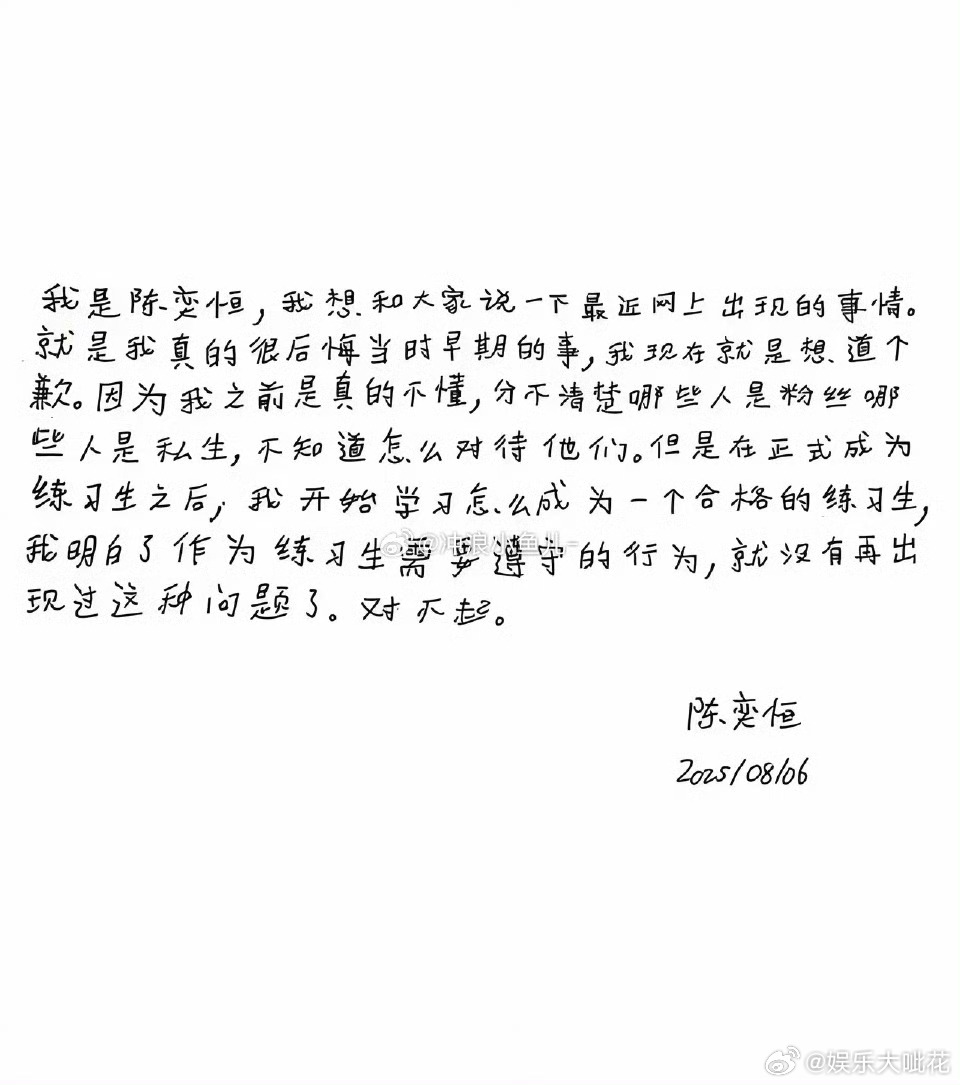 我是陈奕恒，我想和大家说一下最近网上出现的事情。
就是我真的很后悔当时早期的事，我现在就是想道个
歉。因为我之前是真的不懂，分不清楚哪些人是粉丝哪
些人是私生，不知道怎么对待他们。但是在正式成为
练习生之后，我开始学习怎么成为一个合格的练习生，
@冲浪小鱼儿-
我明白了作为练习生需要遵守的行为，就没有再出
现过这种问题了。对不起。
陈奕恒
2025/08/06
@娱乐大呲花